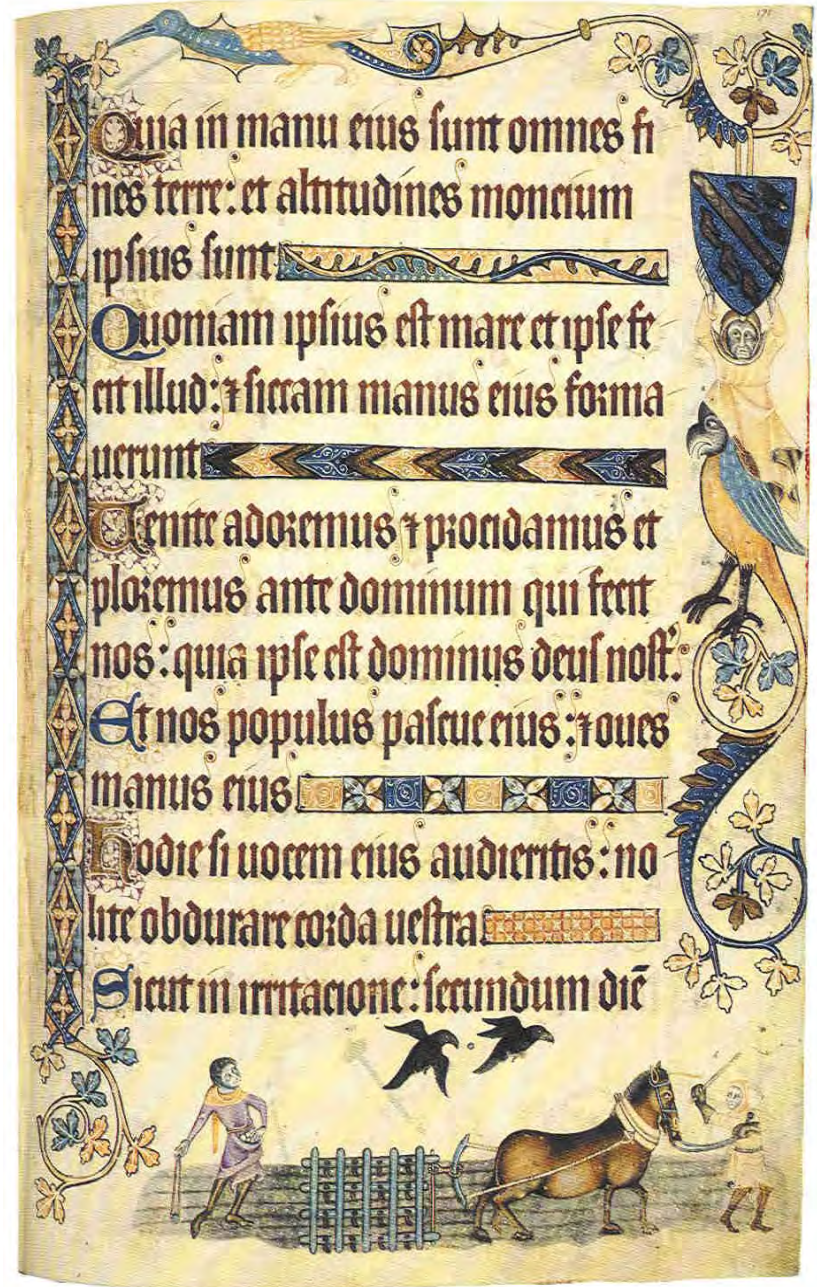 171
Quia in manu eius sunt omnes fi
nes terre: et altitudines moncium
ipsius sunt
Quoniam ipsius est mare et ipse fe
cit illud: ⁊ siccam manus eius forma
uerunt
Uenite adoremus ⁊ procidamus et
ploremus ante dominum qui fecit
nos: quia ipse est dominus deus nost̓.
Et nos populus pascue eius: ⁊ oues
manus eius
Hodie si uocem eius audieritis: no
lite obdurare corda uestra
Sicut in irritacione: secundum diē